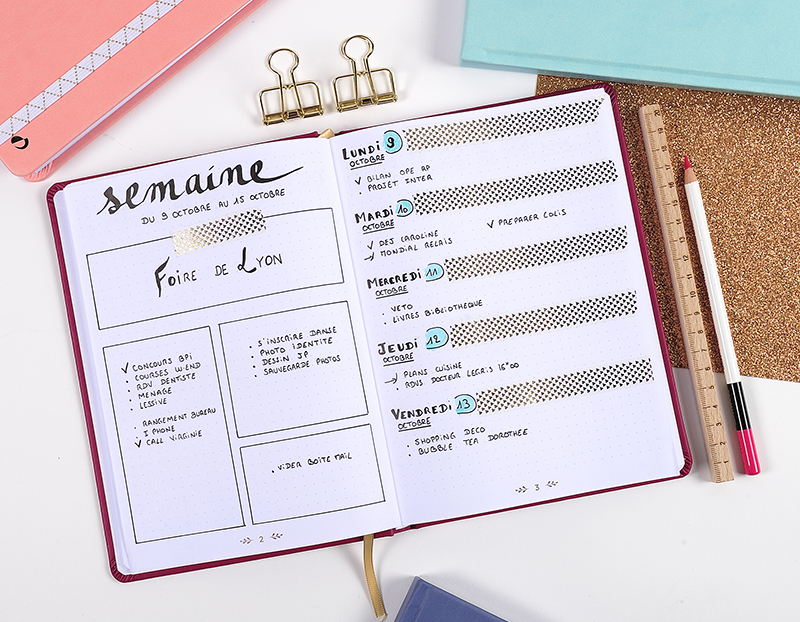 semaine
DU 9 OCTOBRE AU 15 OCTOBRE
FOIRE DE LYON
✓ CONCOURS BPI
• COURSES W.END
• RDV DENTISTE
• MENAGE
• LESSIVE
• RANGEMENT BUREAU
• I PHONE
✓ CALL VIRGINIE
• S'INSCRIRE DANSE
• PHOTO IDENTITE
• DESSIN JP
• SAUVEGARDE PHOTOS
• VIDER BOITE MAIL
2
LUNDI 9
OCTOBRE
✓ BILAN OPE RP
• PROJET INTER
MARDI 10
OCTOBRE
✓ DEJ CAROLINE
→ MONDIAL RELAIS
✓ PREPARER COLIS
MERCREDI 11
OCTOBRE
• VETO
• LIVRES BIBLIOTHEQUE
JEUDI 12
OCTOBRE
→ PLANS CUISINE
• RDVS DOCTEUR LEGRIS 16H00
VENDREDI 13
OCTOBRE
• SHOPPING DECO
• BUBBLE TEA DOROTHEE
3